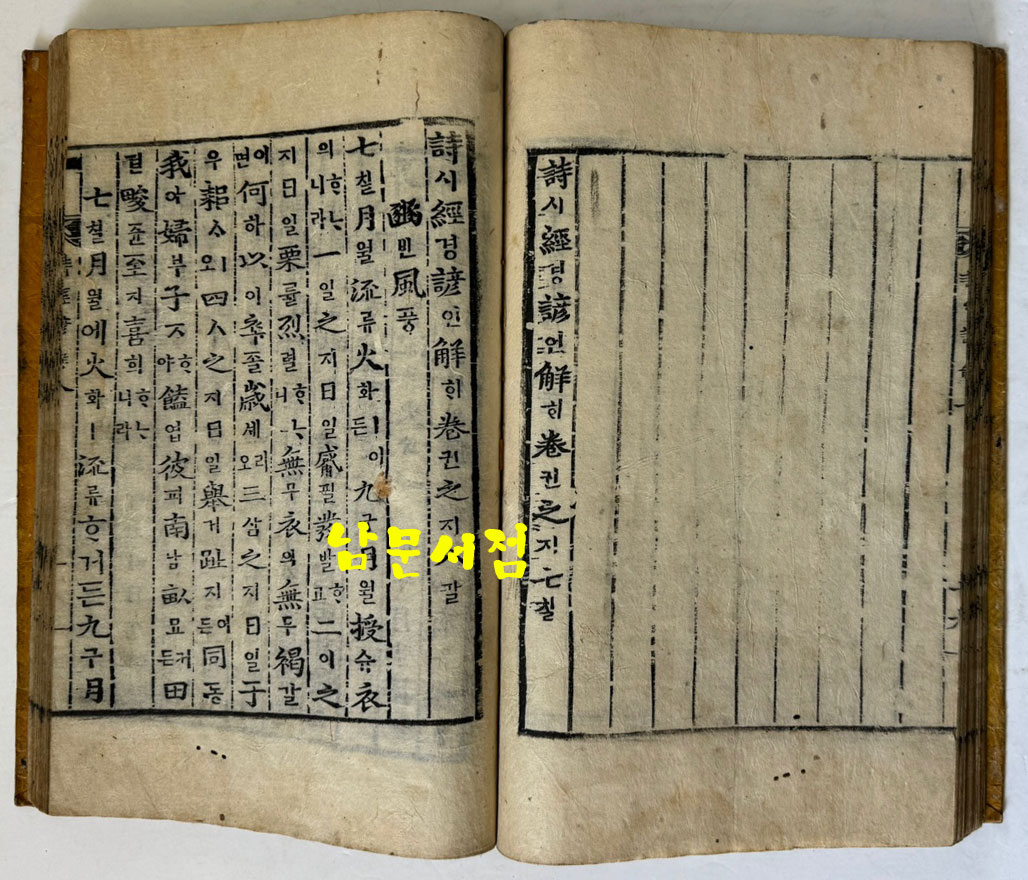 詩시經경諺언解ᄒᆡ卷권之지七칠
詩시經경諺언解ᄒᆡ卷권之지
豳빈風풍
七칠月월流류火화ㅣ이든九구月월授슈衣
의ᄒᆞᄂᆞ니라一일之지日일觱필發발ᄒᆞ고二이之
지日일栗률烈렬ᄒᆞᄂᆞ니無무衣의無무褐갈
이면何하以이卒졸歲셰리오三삼之지日일于
우耜ᄉᆞㅣ오四ᄉᆞ之지日일擧거趾지이든同동
我아婦부子ᄌᆞᄒᆞ야饁업彼피南남畝묘ㅣ거든田
뎐畯쥰至지喜희ᄒᆞᄂᆞ니라
七칠月월에火화ㅣ流류ᄒᆞ거든九구月
남문서점